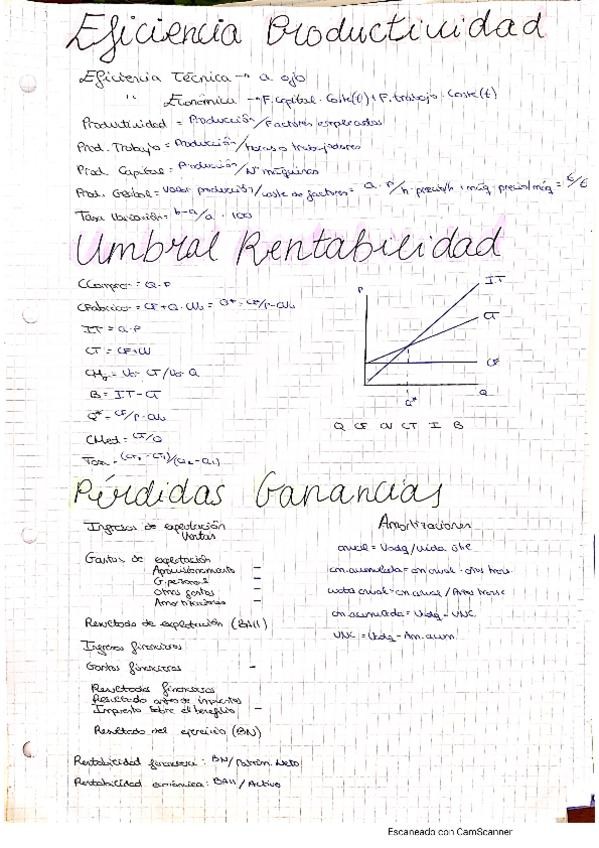 Eficiencia Productividad
Eficiencia Técnica → a ojo
" Económica → F. capital · Coste(t) + F. trabajo · Coste(t)
Productividad = Producción/Factores empleados
Prod. Trabajo = Producción/horas o trabajadores
Prod. Capital = Producción/Nº máquinas
Prod. Global = Valor producción/coste no factores =
Tasa Variación = b-a/a · 100
Umbral Rentabilidad
CCompra = Q·P
IT
P
CT
CFabricar = CF + Q·CVu = Q* = CF/P-CVu
IT = Q·P
CT = CF+CV
CF
B = IT - CT
Q
Q* = CF/P-CVu
Q*
CMed = CT/Q
Q CF CV CT I B
Tasa = (CT₂-CT₁)/(Q₂-Q₁)
Pérdidas Ganancias
Ingresos de explotación
Ventas
Amortizaciones
anual = Vadq/vida útil
Gastos de explotación
Aprovisionamiento -
G. personal -
Otros gastos -
Amortizaciones -
am. acumulada = am anual · años trans.
cuota anual = am anual / Años transc
am. acumulada = Vadq - VNC
Resultado de explotación (BAII)
VNC = Vadq - Am. acum.
Ingresos financieros
Gastos financieros -
Resultados financieros
Resultado antes de impuestos
Impuesto sobre el beneficio -
Resultado del ejercicio (BN)
Rentabilidad financiera: BN/Patrim. Neto
Rentabilidad económica: BAII/Activo
Escaneado con CamScanner